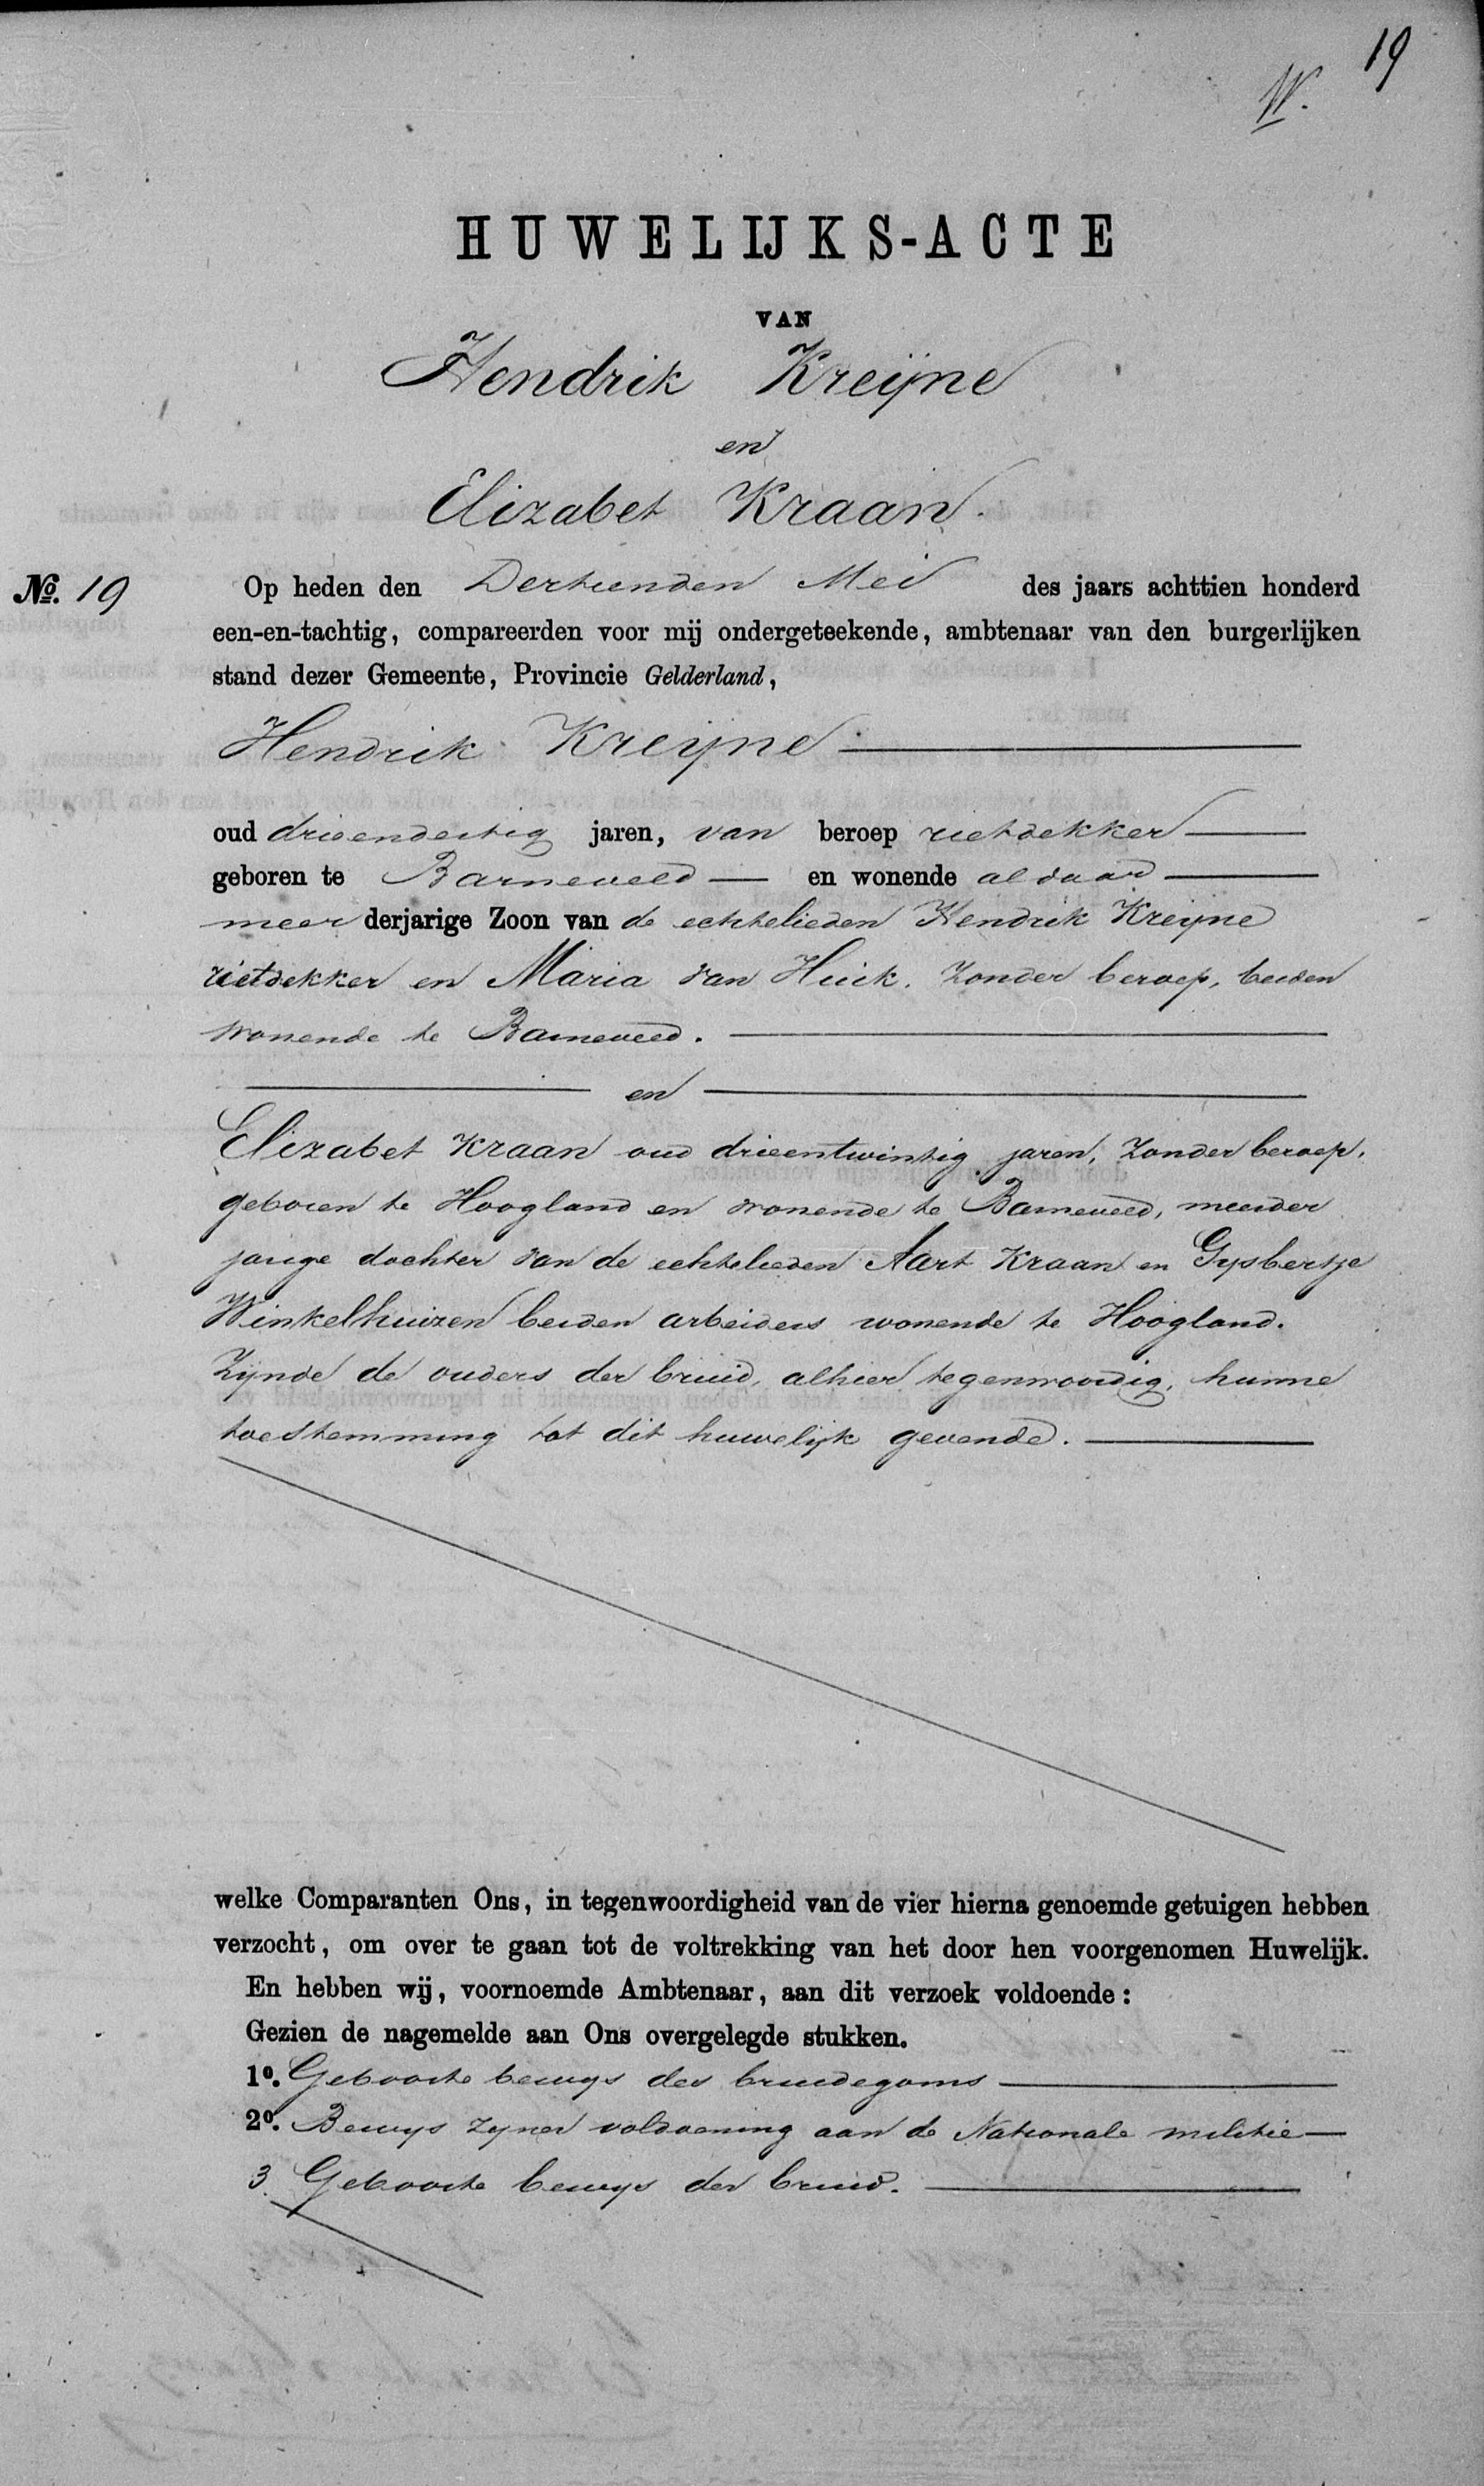 19
W.
HUWELIJKS-ACTE
VAN
Hendrik Kreijne
en
Elizabet Kraan.
No. 19 Op heden den Dertienden Mei des jaars achttien honderd
een-en-tachtig, compareerden voor mij ondergeteekende, ambtenaar van den burgerlijken
stand dezer Gemeente, Provincie Gelderland,
Hendrik Kreijne
oud drieendertig jaren, van beroep rietdekker
geboren te Barneveld en wonende aldaar
meerderjarige Zoon van de echtelieden Hendrik Kreijne
rietdekker en Maria van Huik. Zonder beroep, beiden
wonende te Barneveld.
en
Elizabet Kraan oud drieentwintig jaren, Zonder beroep,
geboren te Hoogland en wonende te Barneveld, meerder
jarige dochter van de echtelieden Aart Kraan en Gysbertje
Winkelhuizen beiden arbeiders wonende te Hoogland.
Zijnde de ouders der bruid, alhier tegenwoordig, hunne
toestemming tot dit huwelijk gevende.
welke Comparanten Ons, in tegenwoordigheid van de vier hierna genoemde getuigen hebben
verzocht, om over te gaan tot de voltrekking van het door hen voorgenomen Huwelijk.
En hebben wij, voornoemde Ambtenaar, aan dit verzoek voldoende:
Gezien de nagemelde aan Ons overgelegde stukken.
1o. Geboorte bewys des bruidegoms
2o. Bewys zyner voldoening aan de Nationale militie
3. Geboorte bewys der bruid.